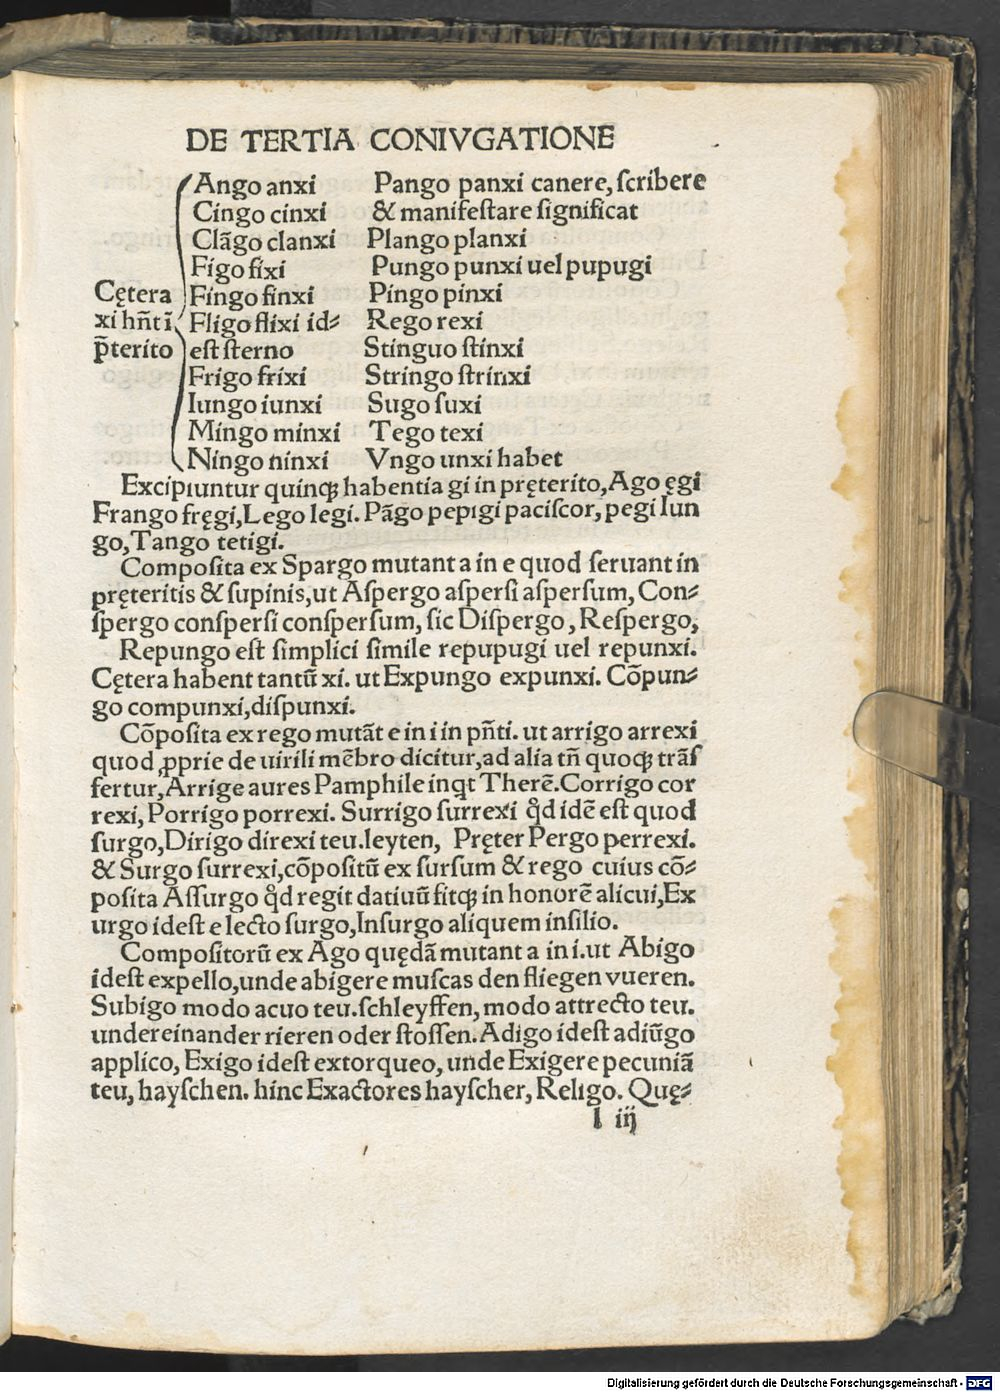 DE TERTIA CONIVGATIONE
Cętera
xi hn̄t ī
p̄terito
Ango anxi
Cingo cinxi
Clāgo clanxi
Figo fixi
Fingo finxi
Fligo flixi id⸗
est sterno
Frigo frixi
Iungo iunxi
Mingo minxi
Ningo ninxi
Pango panxi canere, ſcribere
& manifeſtare ſignificat
Plango planxi
Pungo punxi uel pupugi
Pingo pinxi
Rego rexi
Stinguo ſtinxi
Stringo ſtrinxi
Sugo ſuxi
Tego texi
Vngo unxi habet
Excipiuntur quinqꝫ habentia gi in pręterito, Ago ęgi
Frango fręgi, Lego legi. Pāgo pepigi paciſcor, pegi Iun
go, Tango tetigi.
Compoſita ex Spargo mutant a in e quod ſeruant in
pręteritis & ſupinis, ut Aſpergo aſperſi aſperſum, Con⸗
ſpergo conſperſi conſperſum, ſic Diſpergo, Reſpergo,
Repungo eſt ſimplici ſimile repupugi uel repunxi.
Cętera habent tantū xi. ut Expungo expunxi. Cōpun⸗
go compunxi, diſpunxi.
Cōpoſita ex rego mutāt e in i in pn̄ti. ut arrigo arrexi
quod ꝓprie de uirili mēbro dicitur, ad alia tn̄ quoqꝫ trāſ
fertur, Arrige aures Pamphile inqt Therē. Corrigo cor
rexi, Porrigo porrexi. Surrigo ſurrexi qd̓ idē eſt quod
ſurgo, Dirigo direxi teu. leyten, Pręter Pergo perrexi.
& Surgo ſurrexi, cōpoſitū ex ſurſum & rego cuius cō⸗
poſita Aſſurgo qd̓ regit datiuū fitqꝫ in honorē alicui, Ex
urgo ideſt e lecto ſurgo, Inſurgo aliquem inſilio.
Compoſitorū ex Ago quędā mutant a in i. ut Abigo
ideſt expello, unde abigere muſcas den fliegen vueren.
Subigo modo acuo teu. ſchleyffen, modo attrecto teu.
undereinander rieren oder ſtoſſen. Adigo ideſt adiūgo
applico, Exigo ideſt extorqueo, unde Exigere pecuniā
teu, hayſchen. hinc Exactores hayſcher, Religo. Quę⸗
l iij
Digitalisierung gefördert durch die Deutsche Forschungsgemeinschaft - DFG